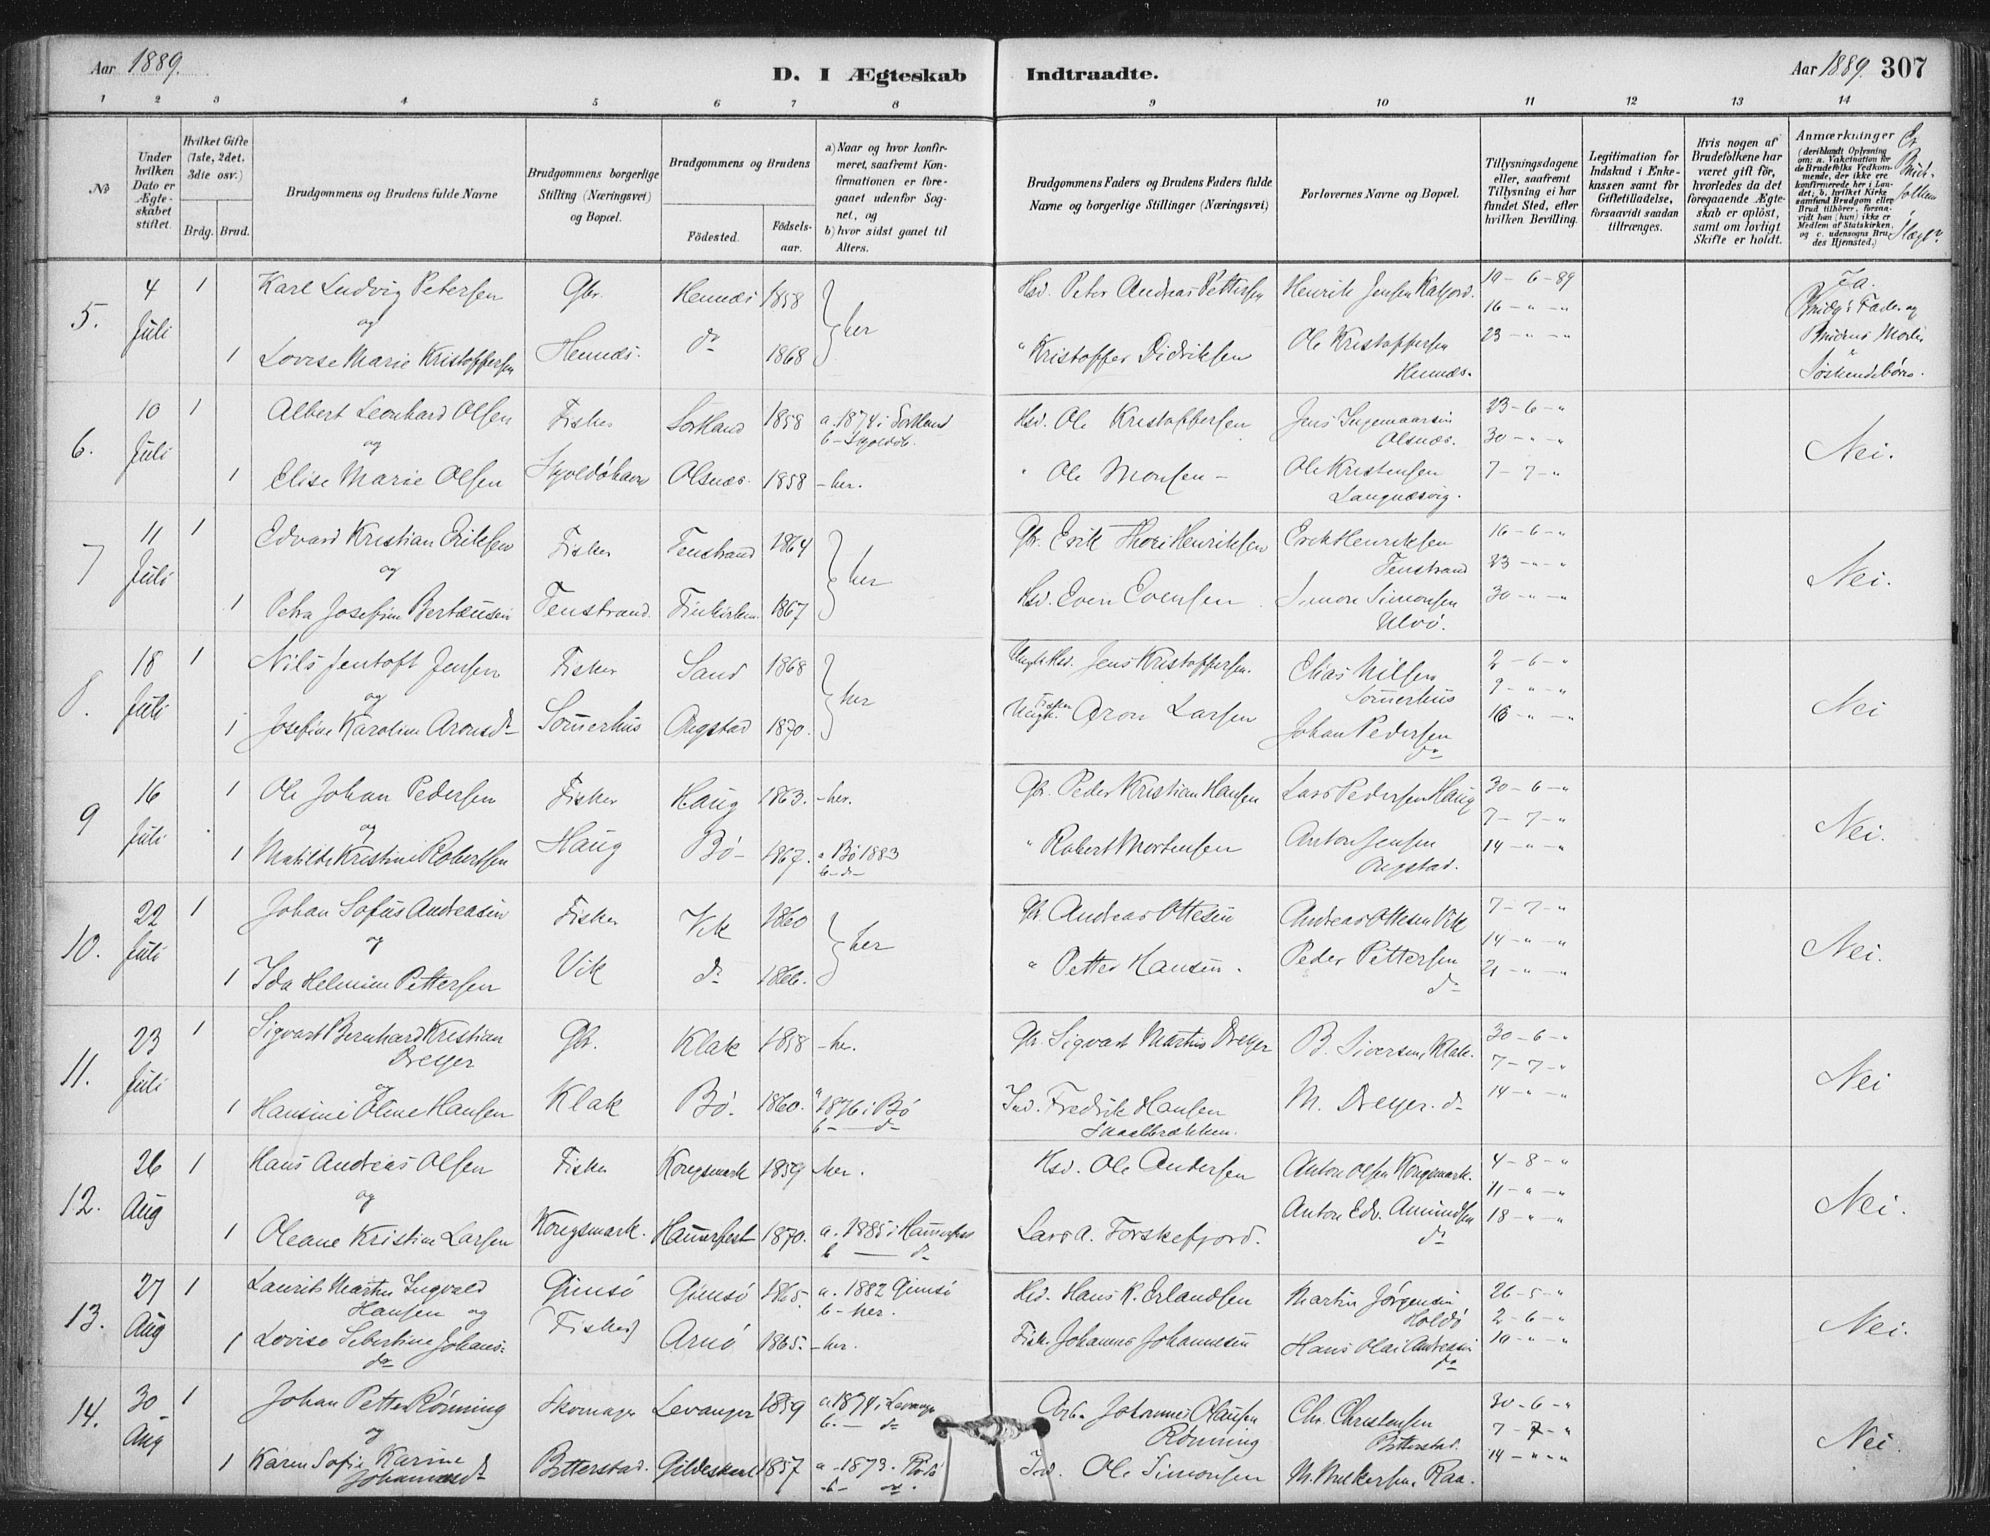 Aar 1889.
D. I Ægteskab
Indtraadte.
Aar 1889. 307
1 2 3 4 5 6 7 8 9 10 11 12 13 14
№
Under hvilken Dato er Ægteskabet stiftet.
Hvilket Gifte (1ste, 2det, 3die osv.)
Brdg. Brud.
Brudgommens og Brudens fulde Navne
Brudgommens borgerlige Stilling (Næringsvei) og Bopæl.
Brudgommens og Brudens
Fødested.
Fødselsaar.
a) Naar og hvor konfirmeret, saafremt Konfirmationen er foregaaet udenfor Sognet, og
b) hvor sidst gaaet til Alters.
Brudgommens Faders og Brudens Faders fulde Navne og borgerlige Stillinger (Næringsvei)
Forlovernes Navne og Bopæl.
Tillysningsdagene eller, saafremt Tillysning ei har fundet Sted, efter hvilken Bevilling.
Legitimation for Indskud i Enkekassen samt for Giftetilladelse, forsaavidt saadan tiltrænges.
Hvis nogen af Brudefolkene har været gift før, hvorledes da det foregaaende Ægteskab er opløst, samt om lovligt Skifte er holdt.
Anmærkninger (deriblandt Oplysning om: a. Vakcination for de Brudefolks Vedkommende, der ikke ere konfirmerede her i Landet; b. hvilket Kirkesamfund Brudgom eller Brud tilhører, forsaavidt han (hun) ikke er Medlem af Statskirken, og c. udensogns Brudes Hjemsted.)
Er Brudfolkene i Slægt?
5. 4 Juli 1 Karl Ludvig Petersen Gbr. Hennæs 1858 her Hsd. Peter Andreas Pettersen Henrik Jensen Kafjord. 19-6-89 Ja.
og 16 - " - " Brudg's Fader og
1 Lovise Marie Kristoffersen Hennæs. do 1868 " Kristoffer Didriksen Ole Kristoffersen Hennæs. 23 - " - " Brudens Moder Søskendebørn.
6. 10 Juli 1 Albert Leonhard Olsen Fisker Sortland 1858 a. 1874 i Sortland Hsd. Ole Kristoffersen Jens Ingemaarsen Alsnæs. 23-6-"
og b - 30 - " - " Nei.
1 Elise Marie Olsen Skjoldehavn Alsnæs. 1858 - her. " Ole Monsen - Ole Kristensen Langnæsvig. 7-7-"
7 11 Juli 1 Edvard Kristian Eriksen Fisker Tenstrand 1864 her Gbr. Erik Thore Henriksen Erik Henriksen Tenstrand 16-6-"
og 23 - " - " Nei.
1 Petra Josefine Bertæusen Tenstrand. Finkirken 1867 Hsd. Even Evensen Simon Simonsen Ulvø. 30 - " - "
8. 18 Juli 1 Nils Jentoft Jensen Fisker Sand 1868 her Jens Kristoffersen. Elias Nilsen Somerhus 2-6-"
og 9 - " - " Nei
1 Josefine Karoline Aronsdr Somerhus Ongstad 1870. Fisker Aron Larsen Johan Pedersen do 16 - " - "
9 16 Juli 1 Ole Johan Pedersen Fisker Haug 1863. - her. Gbr. Peder Kristian Hansen Lars Pedersen Haug 30-6-"
og 7-7-" Nei.
1 Matilde Kristine Robertsen Haug Bø - 1867. a Bø 1883 b - d - " Robert Mortensen Anton Jensen Ongstad. 14 - " - "
10. 22 Juli 1 Johan Sofus Andreasen Fisker Vik 1860 her Gbr Andreas Ottesen Andreas Ottesen Vik 7-7-"
og 14 - " - " Nei.
1 Ida Helmine Pettersen Vik do 1866. " Petter Hansen. Peder Pettersen do 21 - " - "
11. 23 Juli 1 Sigvart Bernhard Kristian Dreyer Gbr. Klak 1858 - her. Gbr Sigvart Martus Dreyer B. Siversen, Klak. 30-6-"
og 7-7-" Nei
1 Hansine Oline Hansen Klak Bø. 1860. a 1876 i Bø b - do Ind. Fredrik Hansen Skaalbrækken. M. Dreyer. do 14 - " - "
12. 26 Aug 1 Hans Andreas Olsen Fisker Kongsmark 1859 - her. Hsd. Ole Andersen Anton Olsen Kongsmark. 4-8-"
og 11 - " - " Nei.
1 Oleane Kristine Larsen Kongsmark. Hammerfest 1870. a. 1885 i Hammerfest b - do Lars A. Torskefjord. Anton Edv. Amundsen do 18 - " - "
13. 27 Aug 1 Laurits Martin Ingvald Hansen og Gimsø Gimsø 1865. a. 1882 Gimsø b - her. Hsd. Hans K. Erlandsen Martin Jørgensen Holdø 26-5-"
2-6-" Nei.
1 Lovise Sebertine Johansda (Fisker) Arnø 1865. - her. Fisk. Johannes Johannesen Hans Olai Andreasen do 10 - " - "
14. 30 Aug 1 Johan Petter Rønning Skomager Levanger 1859 a 1874 i Levanger b. - do Arb. Johannes Olausen Rønning Chr. Christensen Bitterstad. 30-6-"
og 7-7-" Nei.
1 Karen Sofie Karine Johannesdr Bitterstad. Gildeskaal 1857 a. 1873. Bodø b - do. Ind. Ole Simonsen M. Bulkersen, Raa. 14 - " - "